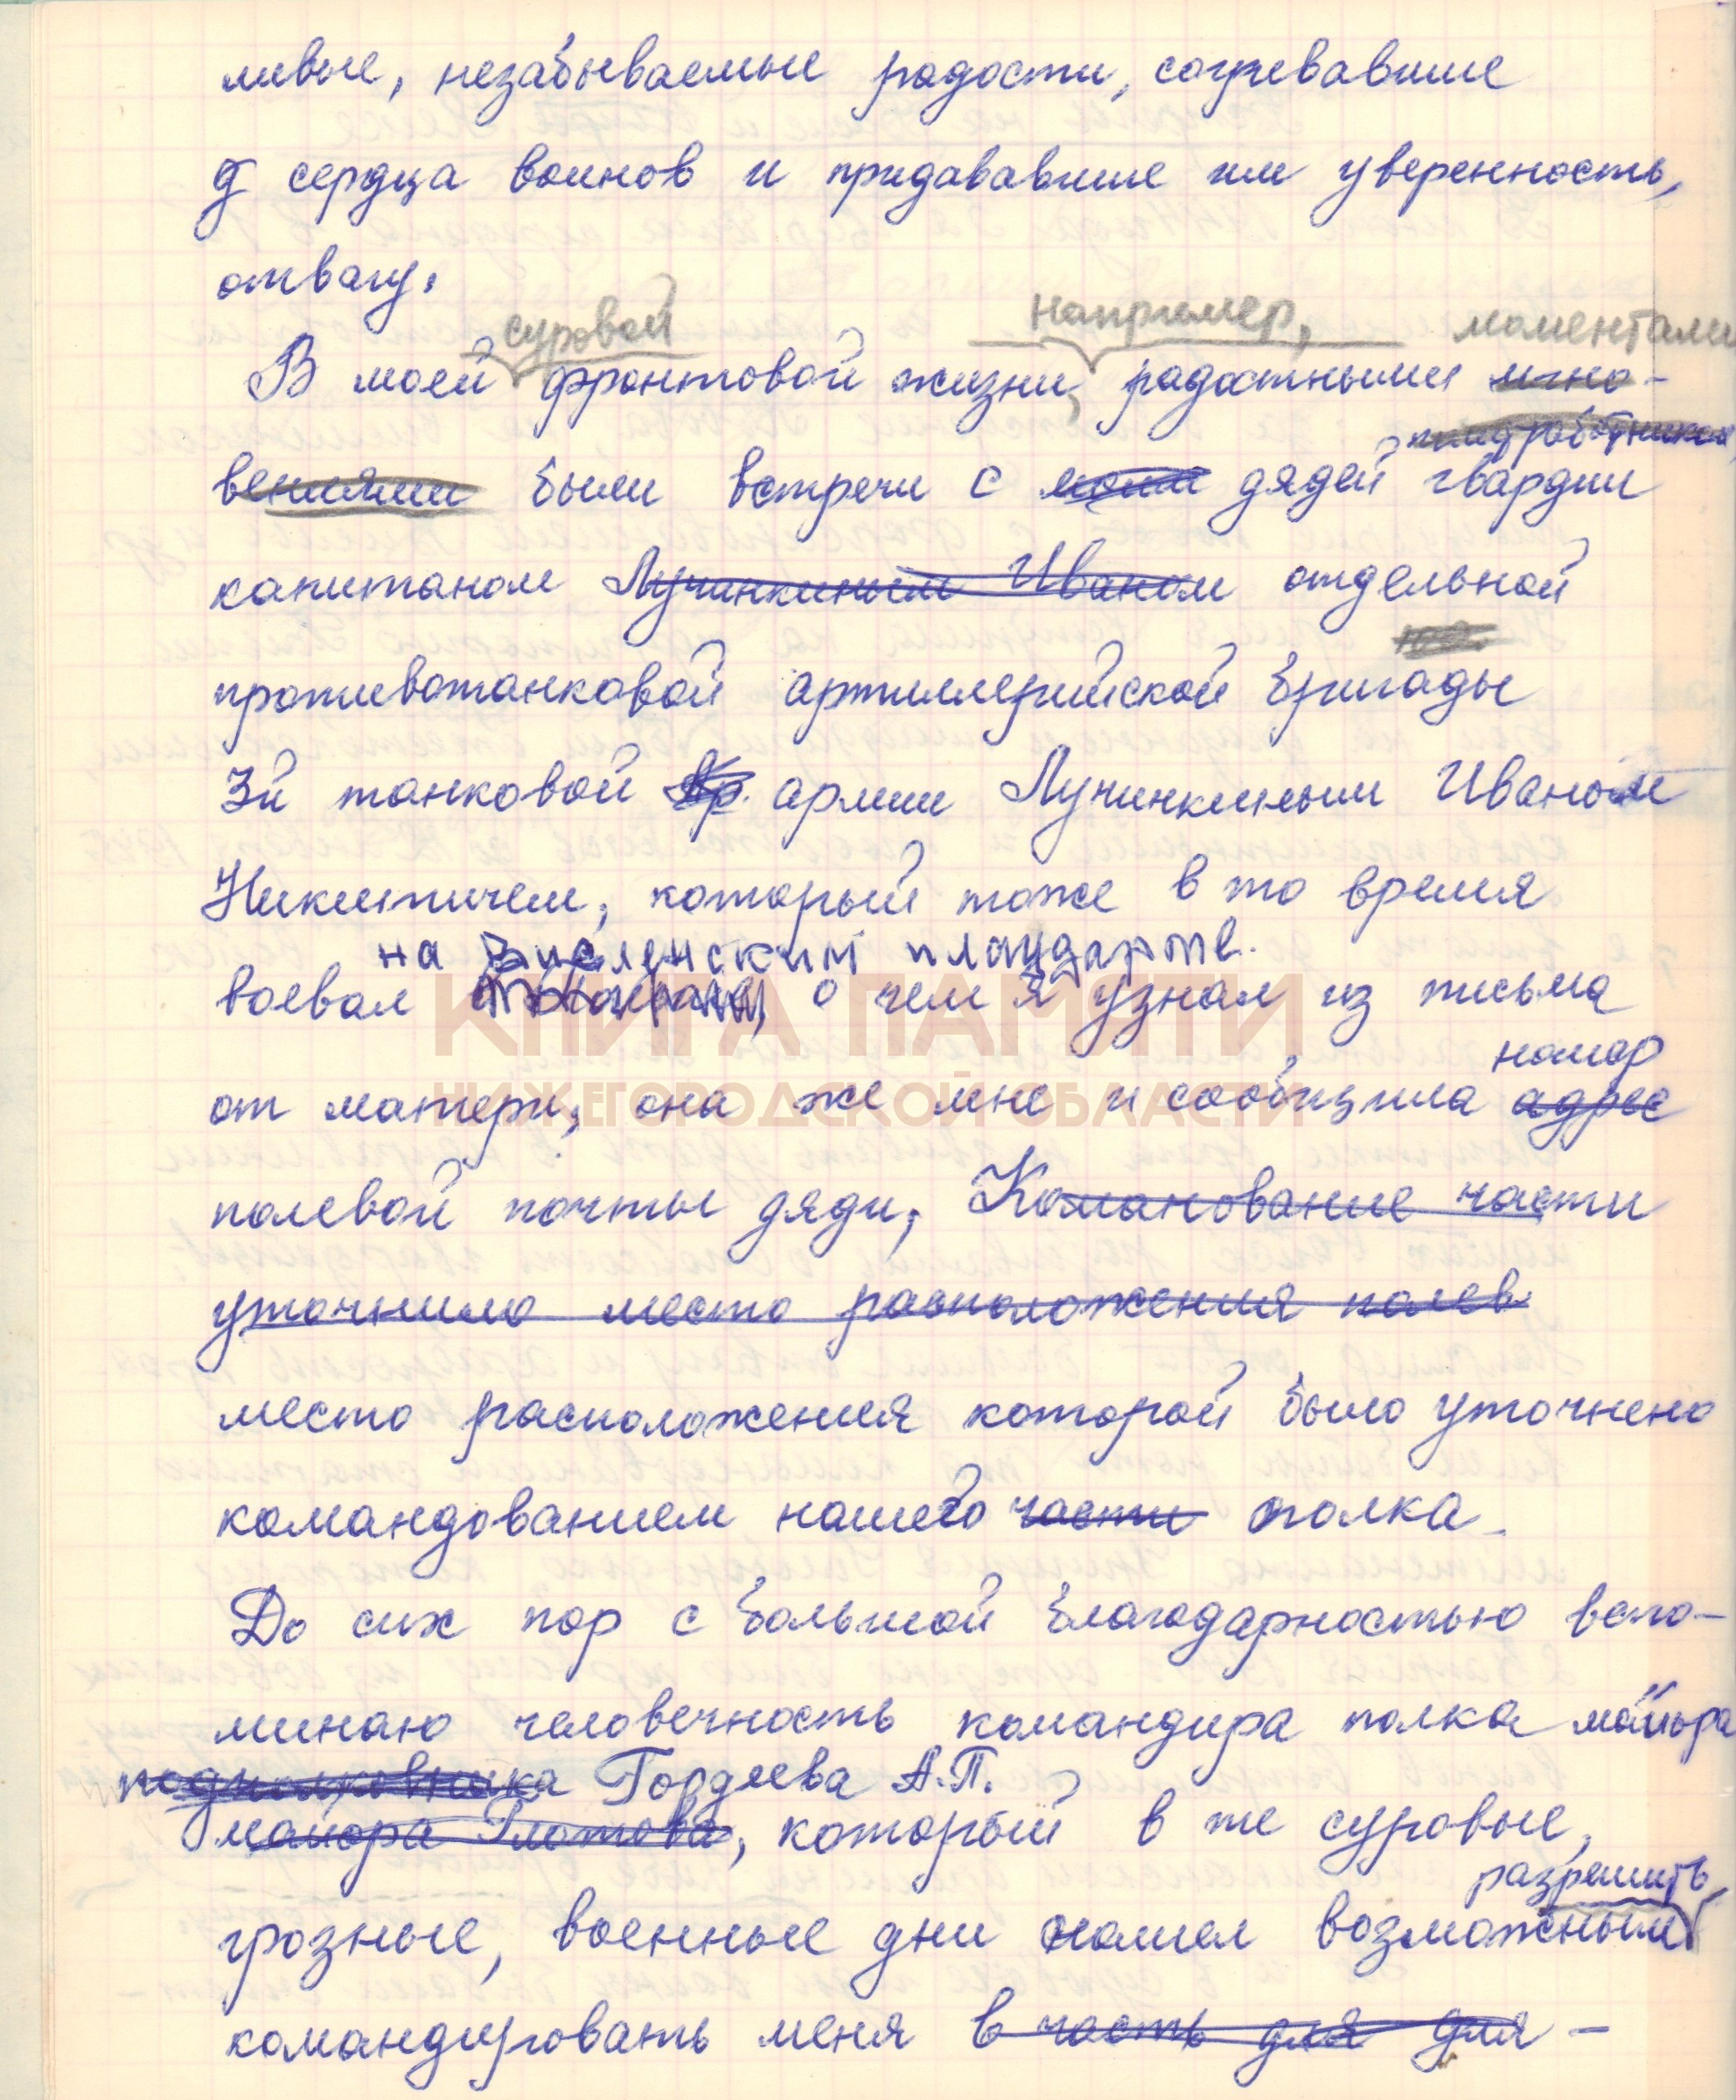 ливые, незабываемые радости, согревавшие
сердца воинов и придававшие им уверенность,
отвагу.
суровой например, моментами
В моей фронтовой жизни, радостными мгно-
политработником,
вениями были встречи с моим дядей гвардии
капитаном Лучинкиным Иваном отдельной
противотанковой артиллерийской бригады
3й танковой армии Лучинкиным Иваном
Никитичем, который тоже в то время
на Висленским плацдарме.
воевал о чем я узнал из письма
КНИГА ПАМЯТИ
номер
от матери, она же мне и сообщила адрес
НИЖЕГОРОДСКОЙ ОБЛАСТИ
полевой почты дяди, Команование части
уточнило место расположения полев.
место расположения которой было уточнено
командованием нашего части полка.
До сих пор с большой благодарностью вспо-
минаю человечность командира полка майора
подполковника Гордеева А.П.
майора Глотова, который в те суровые,
разрешить
грозные, военные дни нашел возможным
командировать меня в часть для для -